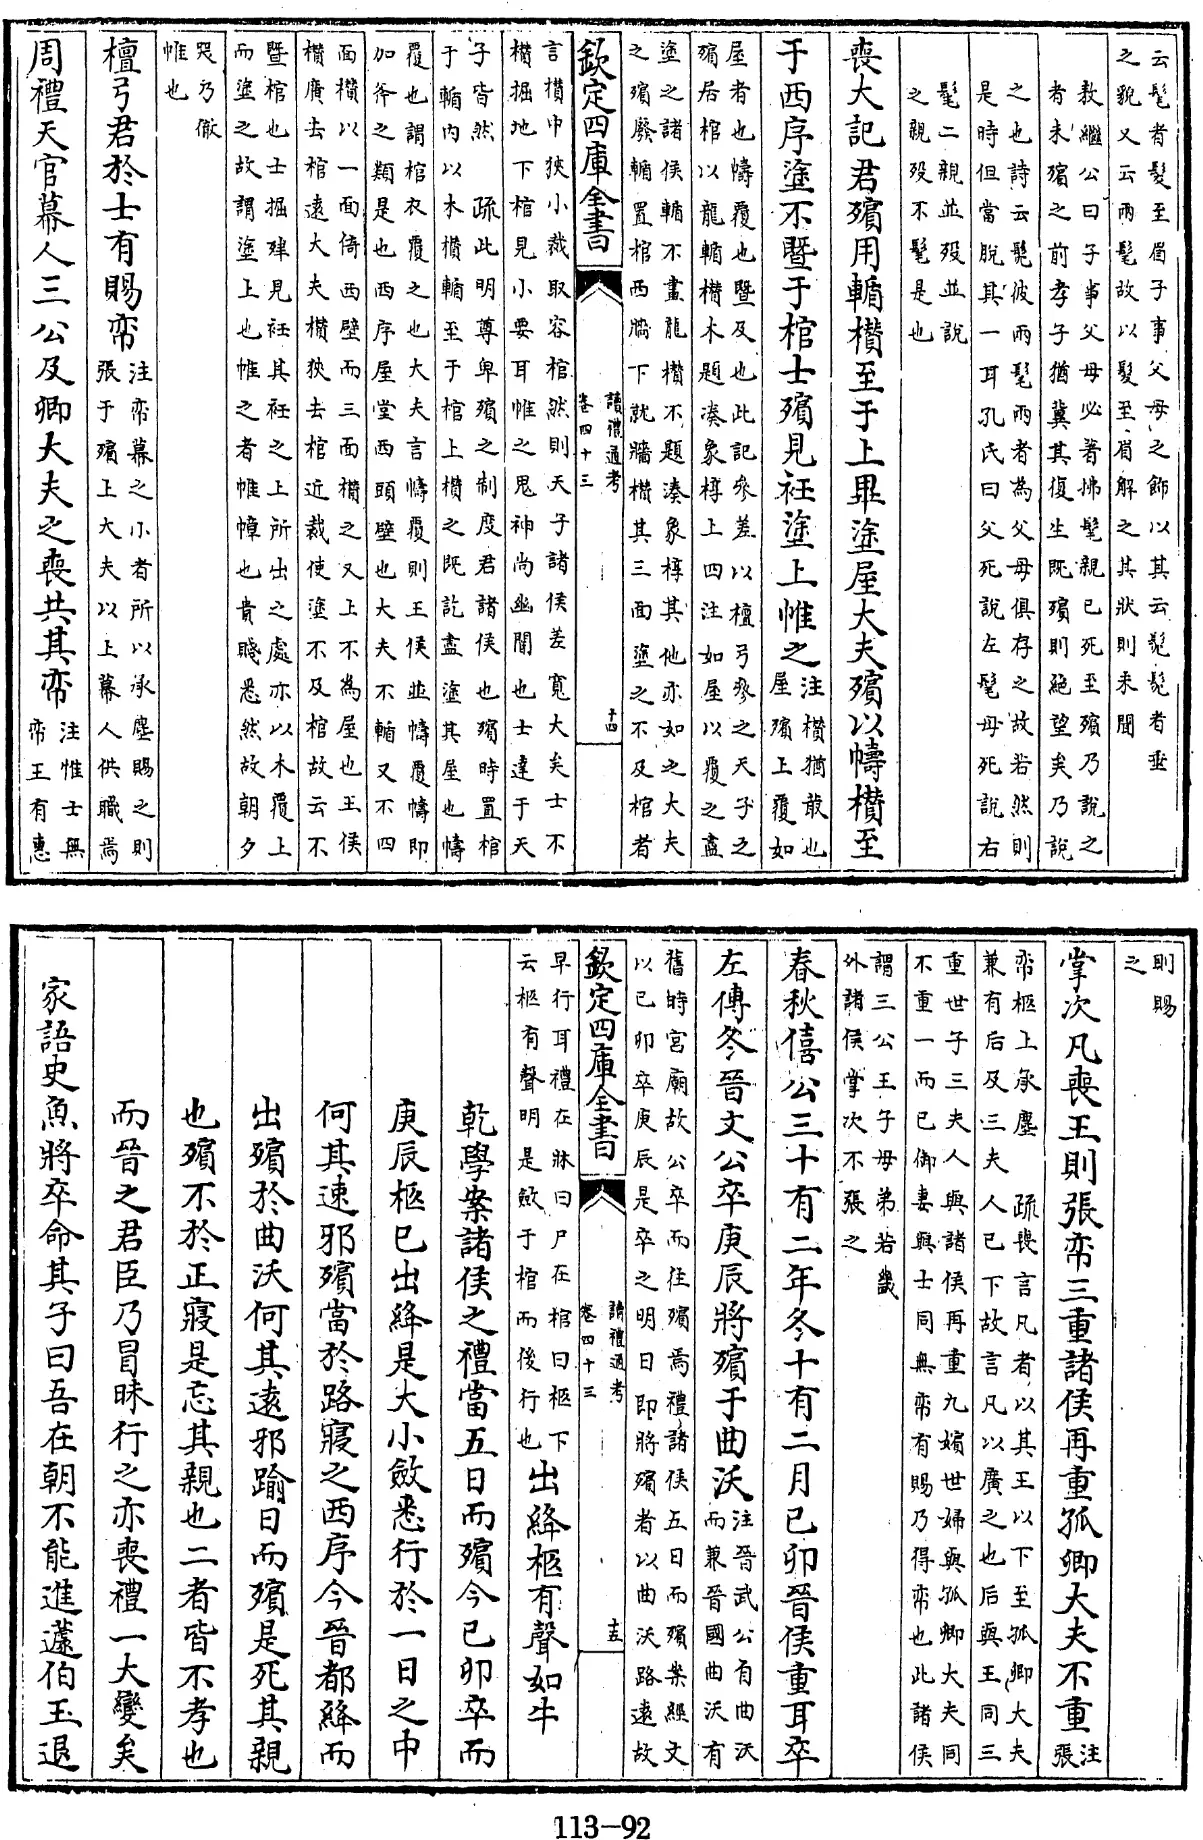 云髦者髮至眉子事父母之飾以其云髧髧者垂
之貌又云兩髦故以髮至眉解之其狀則未聞
敖繼公曰子事父母必著拂髦親已死至殯乃說之
者未殯之前孝子猶冀其復生既殯則絕望矣乃說
之也詩云髧彼兩髦兩者為父母俱存之故若然則
是時但當脫其一耳孔氏曰父死說左髦母死說右
髦二親並歿並說
之親歿不髦是也
喪大記君殯用輴欑至于上畢塗屋大夫殯以幬欑至
于西序塗不暨于棺士殯見衽塗上帷之注欑猶菆也
屋殯上覆如
屋者也幬覆也暨及也此記參差以檀弓參之天子之
殯居棺以龍輴欑木題湊象椁上四注如屋以覆之盡
塗之諸侯輴不畫龍欑不題湊象椁其他亦如之大夫
之殯廢輴置棺西牆下就牆欑其三面塗之不及棺者
欽定四庫全書
讀禮通考
卷四十三
十四
言欑中狹小裁取容棺然則天子諸侯差寬大矣士不
欑掘地下棺見小要耳帷之鬼神尚幽闇也士達于天
子皆然 疏此明尊卑殯之制度君諸侯也殯時置棺
于輴內以木欑輴至于棺上欑之既訖盡塗其屋也幬
覆也謂棺衣覆之也大夫言幬覆則王侯並幬覆幬即
加斧之類是也西序屋堂西頭壁也大夫不輴又不四
面欑以一面倚西壁而三面欑之又上不為屋也王侯
欑廣去棺遠大夫欑狹去棺近裁使塗不及棺故云不
暨棺也士掘肂見衽其衽之上所出之處亦以木覆上
而塗之故謂塗上也帷之者帷幛也貴賤悉然故朝夕
哭乃徹
帷也
檀弓君於士有賜帟注帟幕之小者所以承塵賜之則
張于殯上大夫以上幕人供職焉
周禮天官幕人三公及卿大夫之喪共其帟注惟士無
帟王有惠
則賜
之
掌次凡喪王則張帟三重諸侯再重孤卿大夫不重注
張
帟柩上承塵 疏喪言凡者以其王以下至孤卿大夫
兼有后及三夫人已下故言凡以廣之也后與王同三
重世子三夫人與諸侯再重九嬪世婦與孤卿大夫同
不重一而已御妻與士同無帟有賜乃得帟也此諸侯
謂三公王子母弟若畿
外諸侯掌次不張之
春秋僖公三十有二年冬十有二月已卯晉侯重耳卒
左傳冬晉文公卒庚辰將殯于曲沃注晉武公自曲沃
而兼晉國曲沃有
舊時宮廟故公卒而往殯焉禮諸侯五日而殯案經文
以已卯卒庚辰是卒之明日即將殯者以曲沃路遠故
欽定四庫全書
讀禮通考
卷四十三
十五
早行耳禮在牀曰尸在棺曰柩下
云柩有聲明是斂于棺而後行也出絳柩有聲如牛
乾學案諸侯之禮當五日而殯今已卯卒而
庚辰柩已出絳是大小斂悉行於一日之中
何其速邪殯當於路寢之西序今晉都絳而
出殯於曲沃何其遠邪踰日而殯是死其親
也殯不於正寢是忘其親也二者皆不孝也
而晉之君臣乃冒昧行之亦喪禮一大變矣
家語史魚將卒命其子曰吾在朝不能進蘧伯玉退
113-92